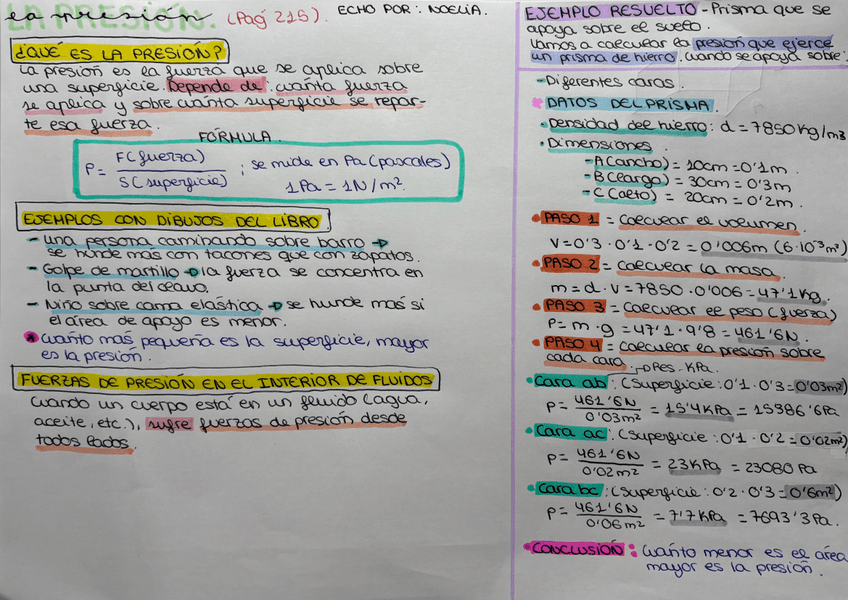 LA PRESIÓN.
la presión. (Pág 215).
ECHO POR: NOELIA.
¿QUÉ ES LA PRESIÓN?
La presión es la fuerza que se aplica sobre
una superficie. Depende de: cuánta fuerza
se aplica y sobre cuánta superficie se repar-
te esa fuerza.
FÓRMULA.
P = F(fuerza) / S(superficie) ; se mide en Pa (pascales)
1Pa = 1N/m².
EJEMPLOS CON DIBUJOS DEL LIBRO
- Una persona caminando sobre barro →
se hunde más con tacones que con zapatos.
- Golpe de martillo → la fuerza se concentra en
la punta del clavo.
- Niño sobre cama elástica → se hunde más si
el área de apoyo es menor.
* Cuánto más pequeña es la superficie, mayor
es la presión.
FUERZAS DE PRESIÓN EN EL INTERIOR DE FLUIDOS
Cuando un cuerpo está en un fluido (agua,
aceite, etc.), sufre fuerzas de presión desde
todos lados.
EJEMPLO RESUELTO - Prisma que se
apoya sobre el suelo.
Vamos a calcular la presión que ejerce
un prisma de hierro, cuando se apoya sobre:
- Diferentes caras.
* DATOS DEL PRISMA.
• Densidad del hierro: d = 7850 kg/m3
• Dimensiones.
- A (ancho) = 10cm = 0'1m.
- B (largo) = 30cm = 0'3m
- C (alto) = 20cm = 0'2m.
• PASO 1 = Calcular el volumen.
V = 0'3 · 0'1 · 0'2 = 0'006m (6·10⁻³m³)
• PASO 2 = Calcular la masa.
m = d · V = 7850 · 0'006 = 47'1kg.
• PASO 3 = Calcular el peso (fuerza)
P = m · g = 47'1 · 9'8 = 461'6N.
• PASO 4 = Calcular la presión sobre
cada cara. → Res. KPa.
• Cara ab: (Superficie: 0'1 · 0'3 = 0'03m²)
P = 461'6N / 0'03m² = 15'4KPa = 15386'6Pa
• Cara ac: (Superficie: 0'1 · 0'2 = 0'02m²)
P = 461'6N / 0'02m² = 23KPa = 23080Pa
• Cara bc: (Superficie: 0'2 · 0'3 = 0'6m²)
P = 461'6N / 0'06m² = 7'7KPa = 7693'3Pa.
• CONCLUSIÓN: Cuánto menor es el área
mayor es la presión.